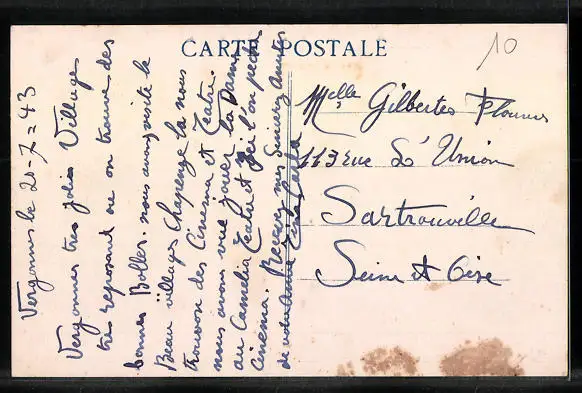 CARTE POSTALE
10
Vergonnes le 20-7-43
Vergonnes tres jolie Village
tres reposant ou on trouve des
bonnes Bolles. nous avons visite le
Beau village Chapenge la nous
trouvon des Cinema et Teatr.
nous avons vue jouer la Dame
au Camelia Teatre et l'on peche
Cinema. Recever mes Sincerz Amities
de votre Amie
Melle Gilbertes
113 rue L'Union
Sartrouville
Seine et Oise